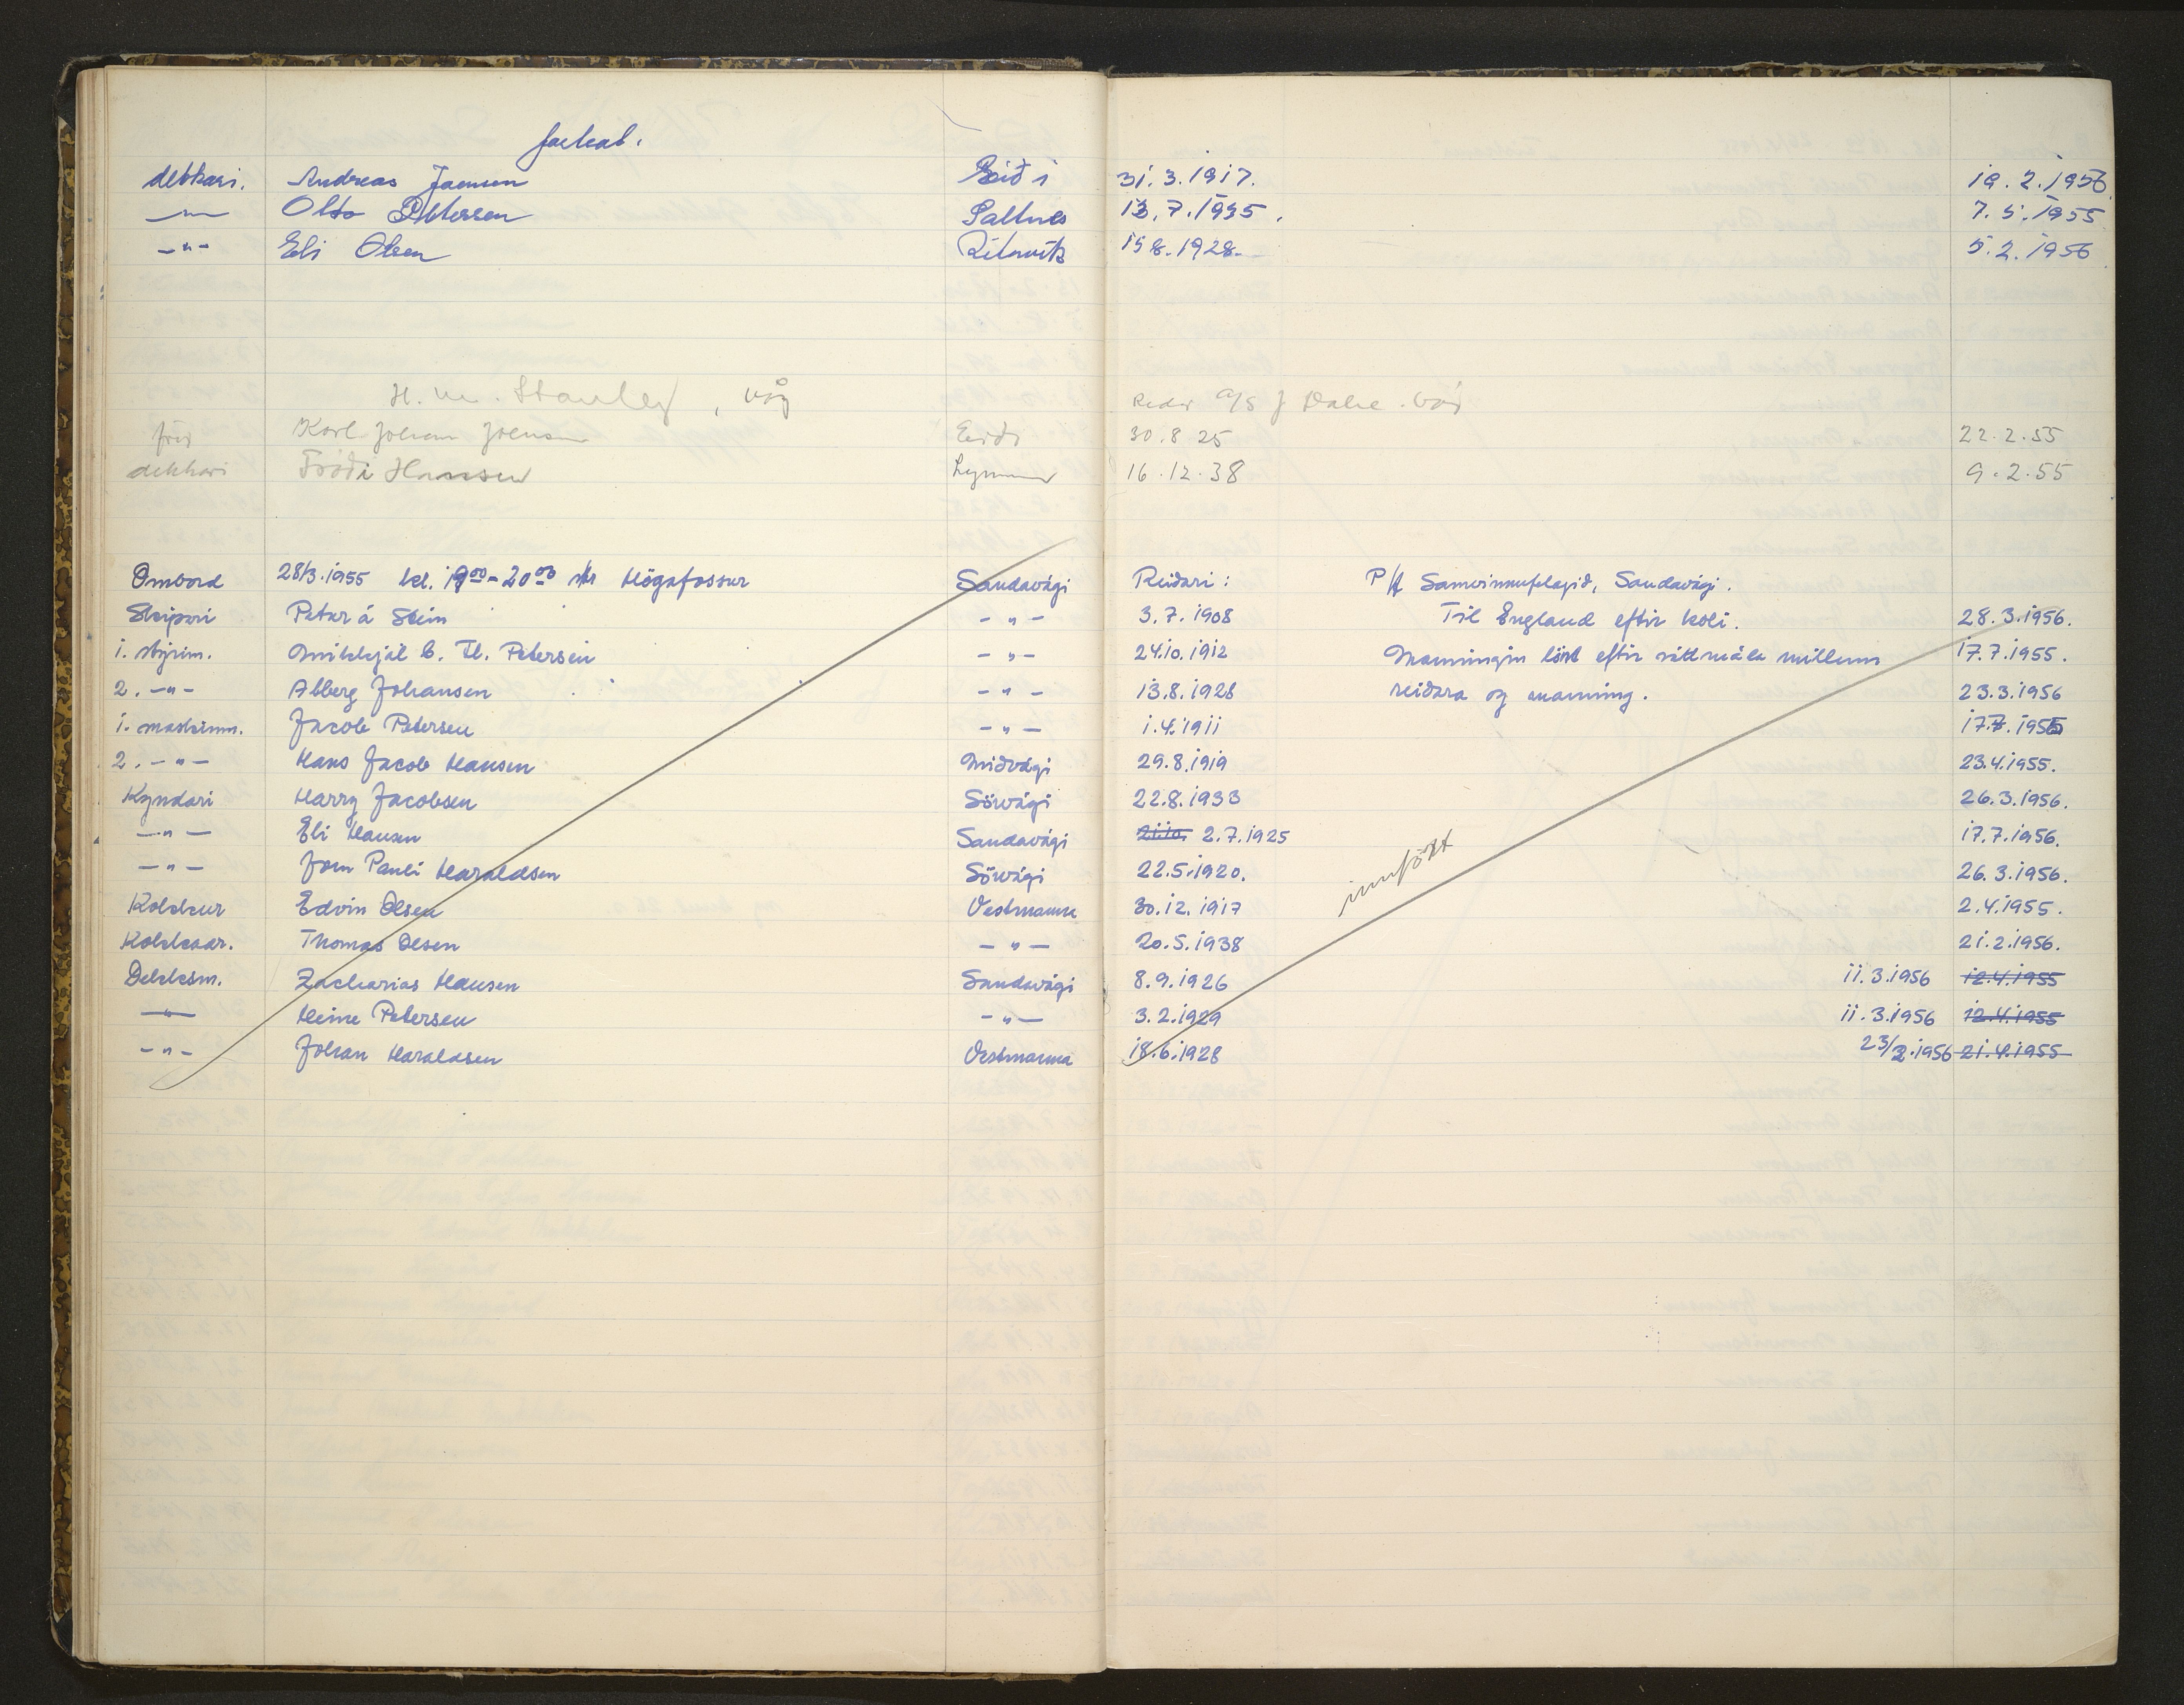 dekkari. Andreas Joensen Eiði 31.3.1917. 19.2.1956
—"— Otto Pettersen Saltnes 13.7.1935. 7.5.1955
-"- Eli Olsen Rituvík 15 8.1928. 5.2.1956
H. M. Stanley, Våg Reder A/S J Dahl. Våg
Karl Johan Joensen Eiði 30.8 25 22.2.55
dekkari Fróði Hansen 16.12.38 9.2.55
Ombord 28/3.1955 kl. 19⁰⁰-20⁰⁰ Högafossur Sandavági Reiðari: P/f Samvinnufelagið, Sandavági.
Skipari Petur á Stein -"- 3.7.1908 Til England eftir koli. 28.3.1956.
1. stýrim. Mikkjál C. Fl. Petersen -"- 24.10.1912 Manningin lönt eftir sáttmála millum 17.7.1955.
2. -"- Abberg Johansen -"- 13.8.1928 reiðara og manning. 23.3.1956
1. maskinm. Jacob Petersen -"- 1.4.1911 17.7.1955
2. -"- Hans Jacob Hansen Miðvági 29.8.1919 23.4.1955.
Kyndari Harry Jacobsen Sörvági 22.8.1933 26.3.1956.
-"- Eli Hansen Sandavági 21.10. 2.7.1925 17.7.1956.
-"- Jorn Pauli Haraldsen Sörvági 22.5.1920. 26.3.1956.
Kokkur Edvin Olsen Vestmanna 30.12.1917 2.4.1955.
Kokksar. Thomas Olsen -"- 20.5.1938 21.2.1956.
Dekksm. Zacharias Hansen Sandavági 8.9.1926 11.3.1956 12.4.1955
-"- Heine Petersen -"- 3.2.1929 11.3.1956 12.4.1955
-"- Johan Haraldsen Vestmanna 18.6.1928 23/2.1956 21.4.1955
innført